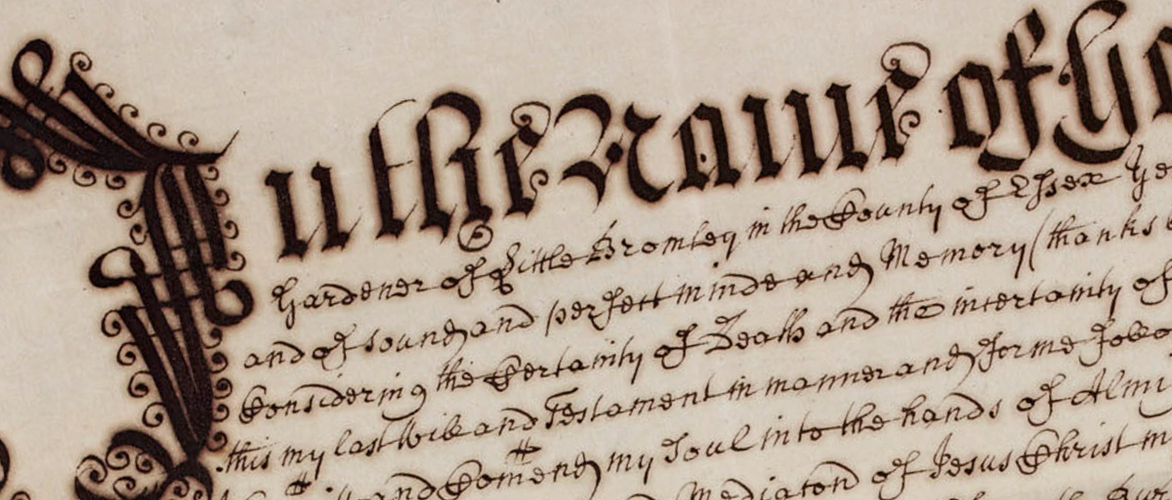 In the Name of Go
Gardener of Little Bromley in the County of Essex Ge
and of sound and perfect minde and Memory (thanks
Considering the Certainty of Death and the incertainty of
this my last Will and Testament in manner and forme follo
and Com̄end my Soul into the hands of Almi
Mediaton of Jesus Christ m